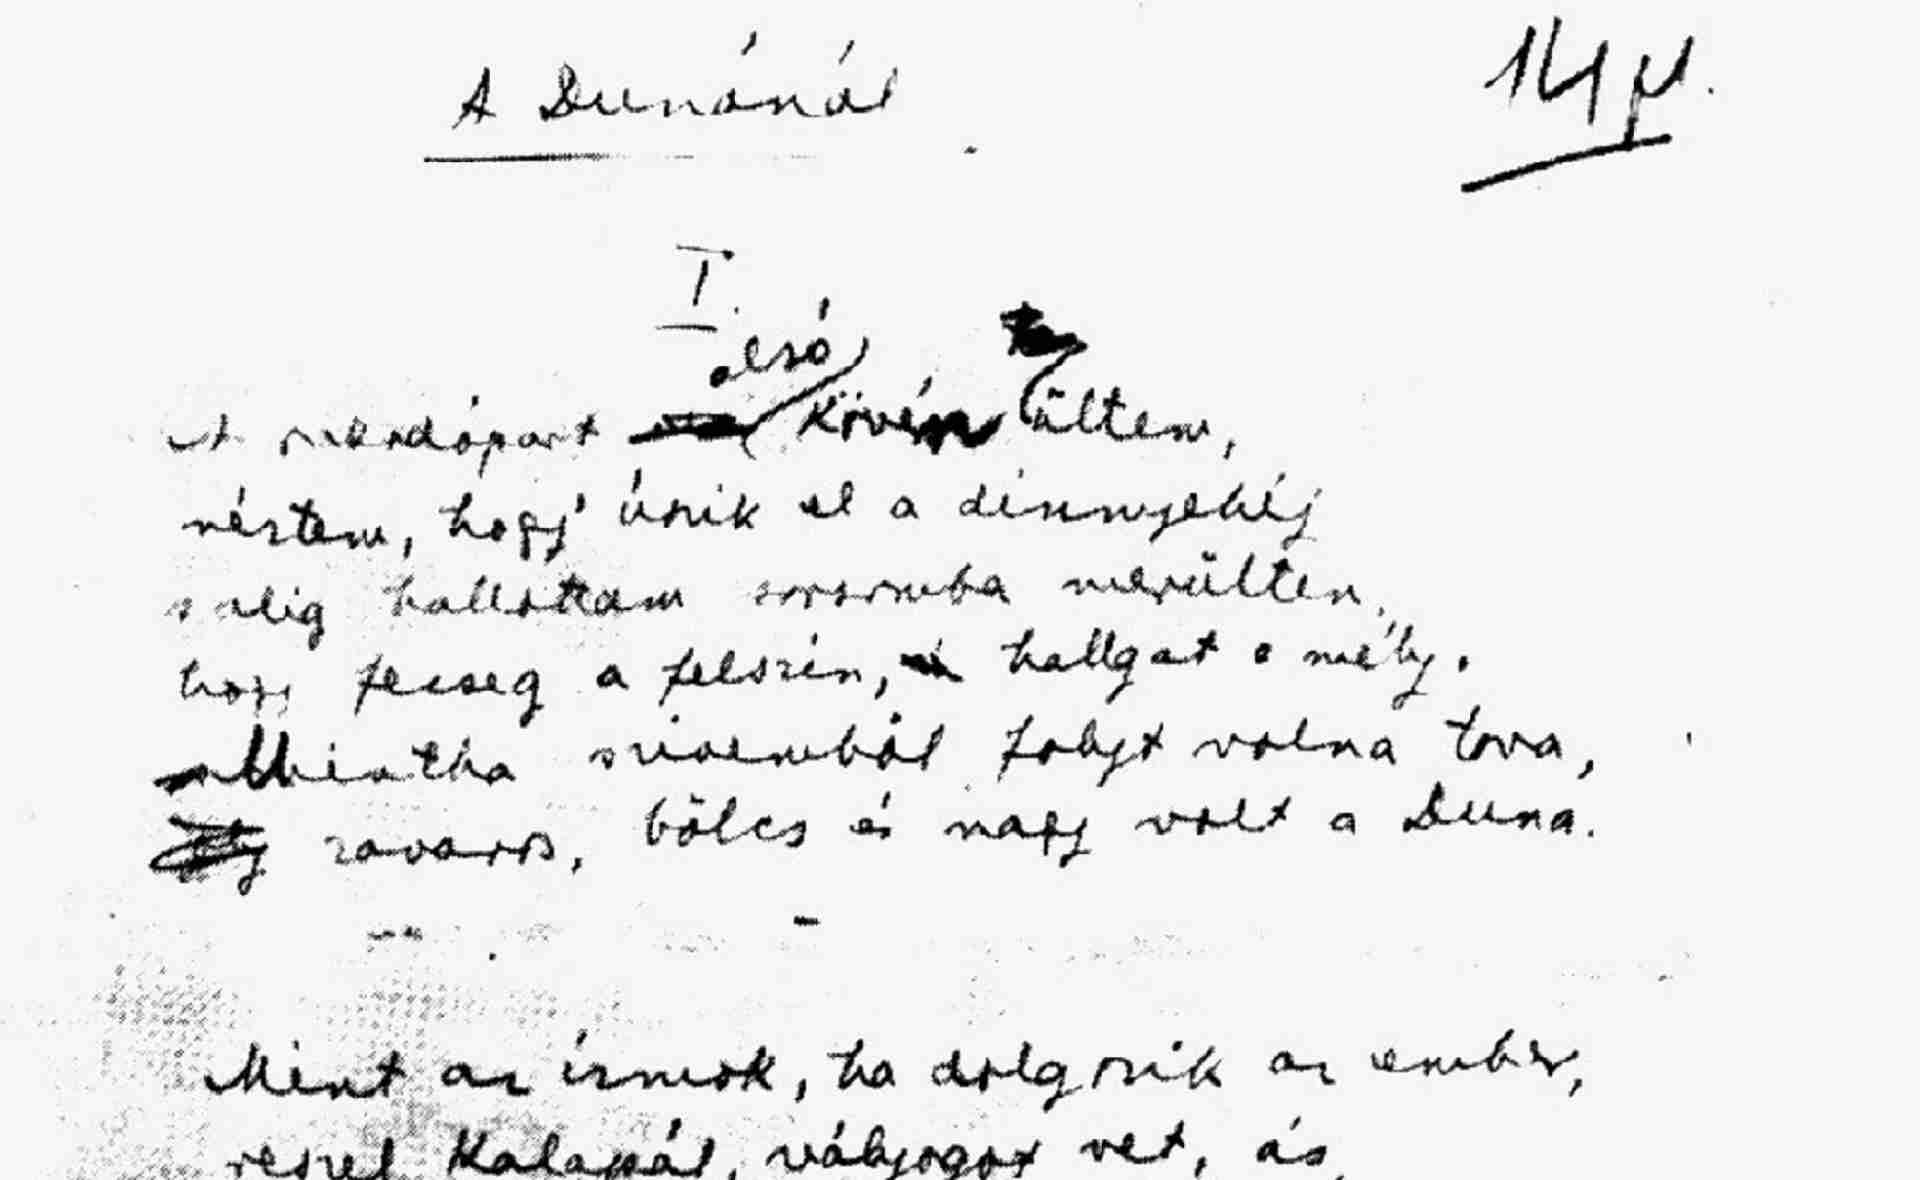 A Dunánál
14 p.
I.
alsó
A rakodópart kövén ültem,
néztem, hogy úszik el a dinnyehéj
s alig hallottam sorsomba merülten,
hogy fecseg a felszin, hallgat a mély.
Mintha szivemből folyt volna tova,
zavaros, bölcs és nagy volt a Duna.
Mint az izmok, ha dolgozik az ember,
reszel kalapál, vályogot vet, ás,